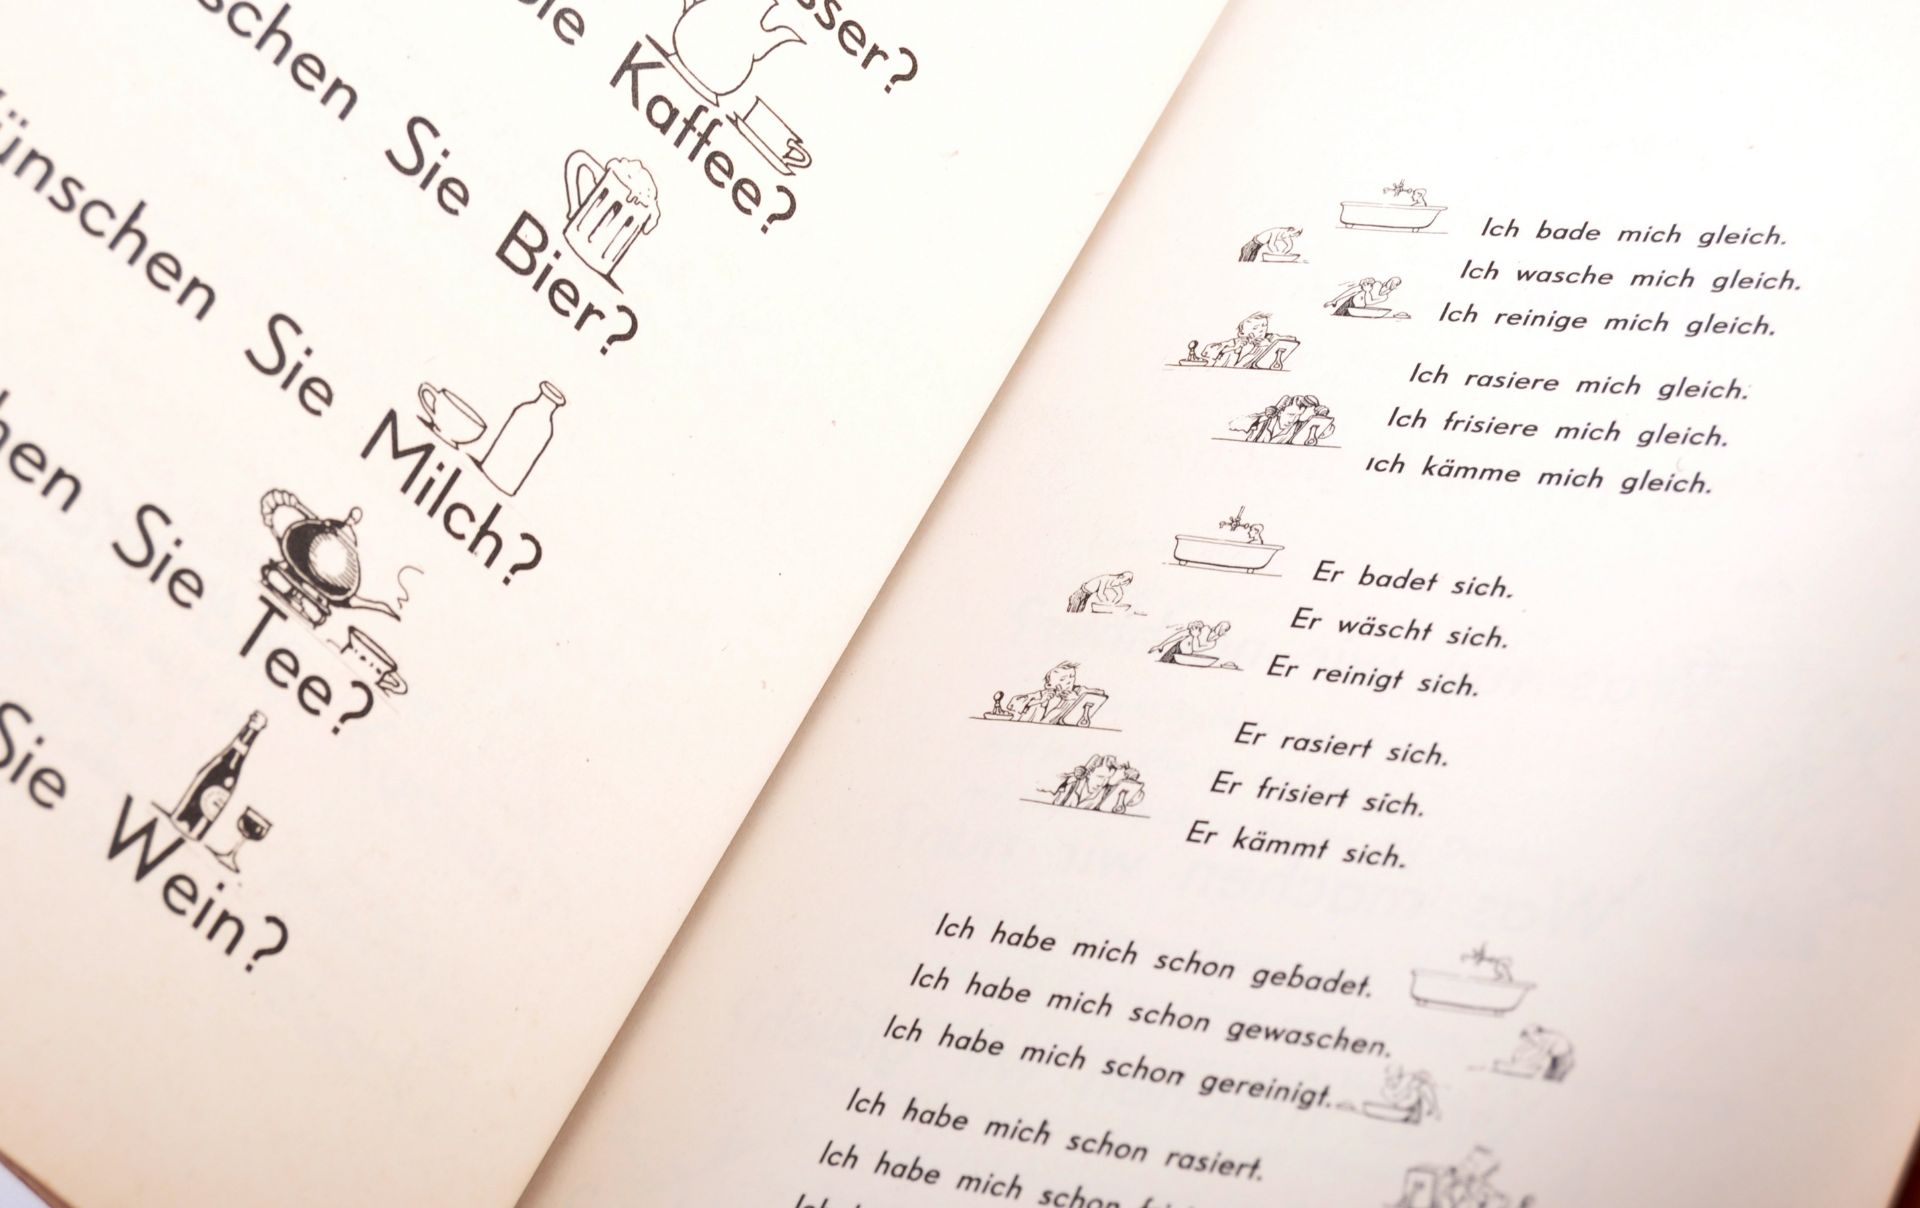 sser?
Sie Kaffee?
schen Sie Bier?
ünschen Sie Milch?
hen Sie Tee?
Sie Wein?
Ich bade mich gleich.
Ich wasche mich gleich.
Ich reinige mich gleich.
Ich rasiere mich gleich.
Ich frisiere mich gleich.
Ich kämme mich gleich.
Er badet sich.
Er wäscht sich.
Er reinigt sich.
Er rasiert sich.
Er frisiert sich.
Er kämmt sich.
Ich habe mich schon gebadet.
Ich habe mich schon gewaschen.
Ich habe mich schon gereinigt.
Ich habe mich schon rasiert.
Ich habe mich schon
Ich